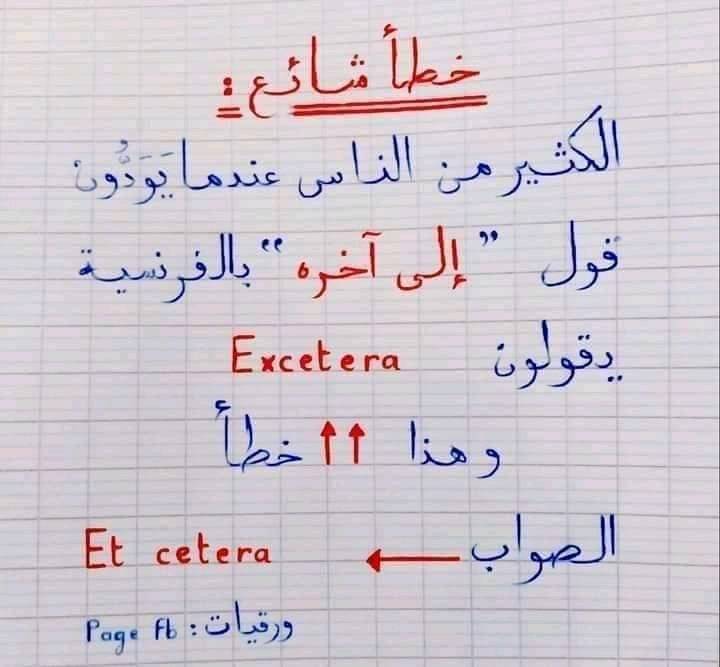 خطأ شائع :
الكثير من الناس عندما يَوَدُّون
قول " إلى آخره " بالفرنسية
يقولون Excetera
وهذا ↑↑ خطأ
الصواب ← Et cetera
Page fb : ورقيات